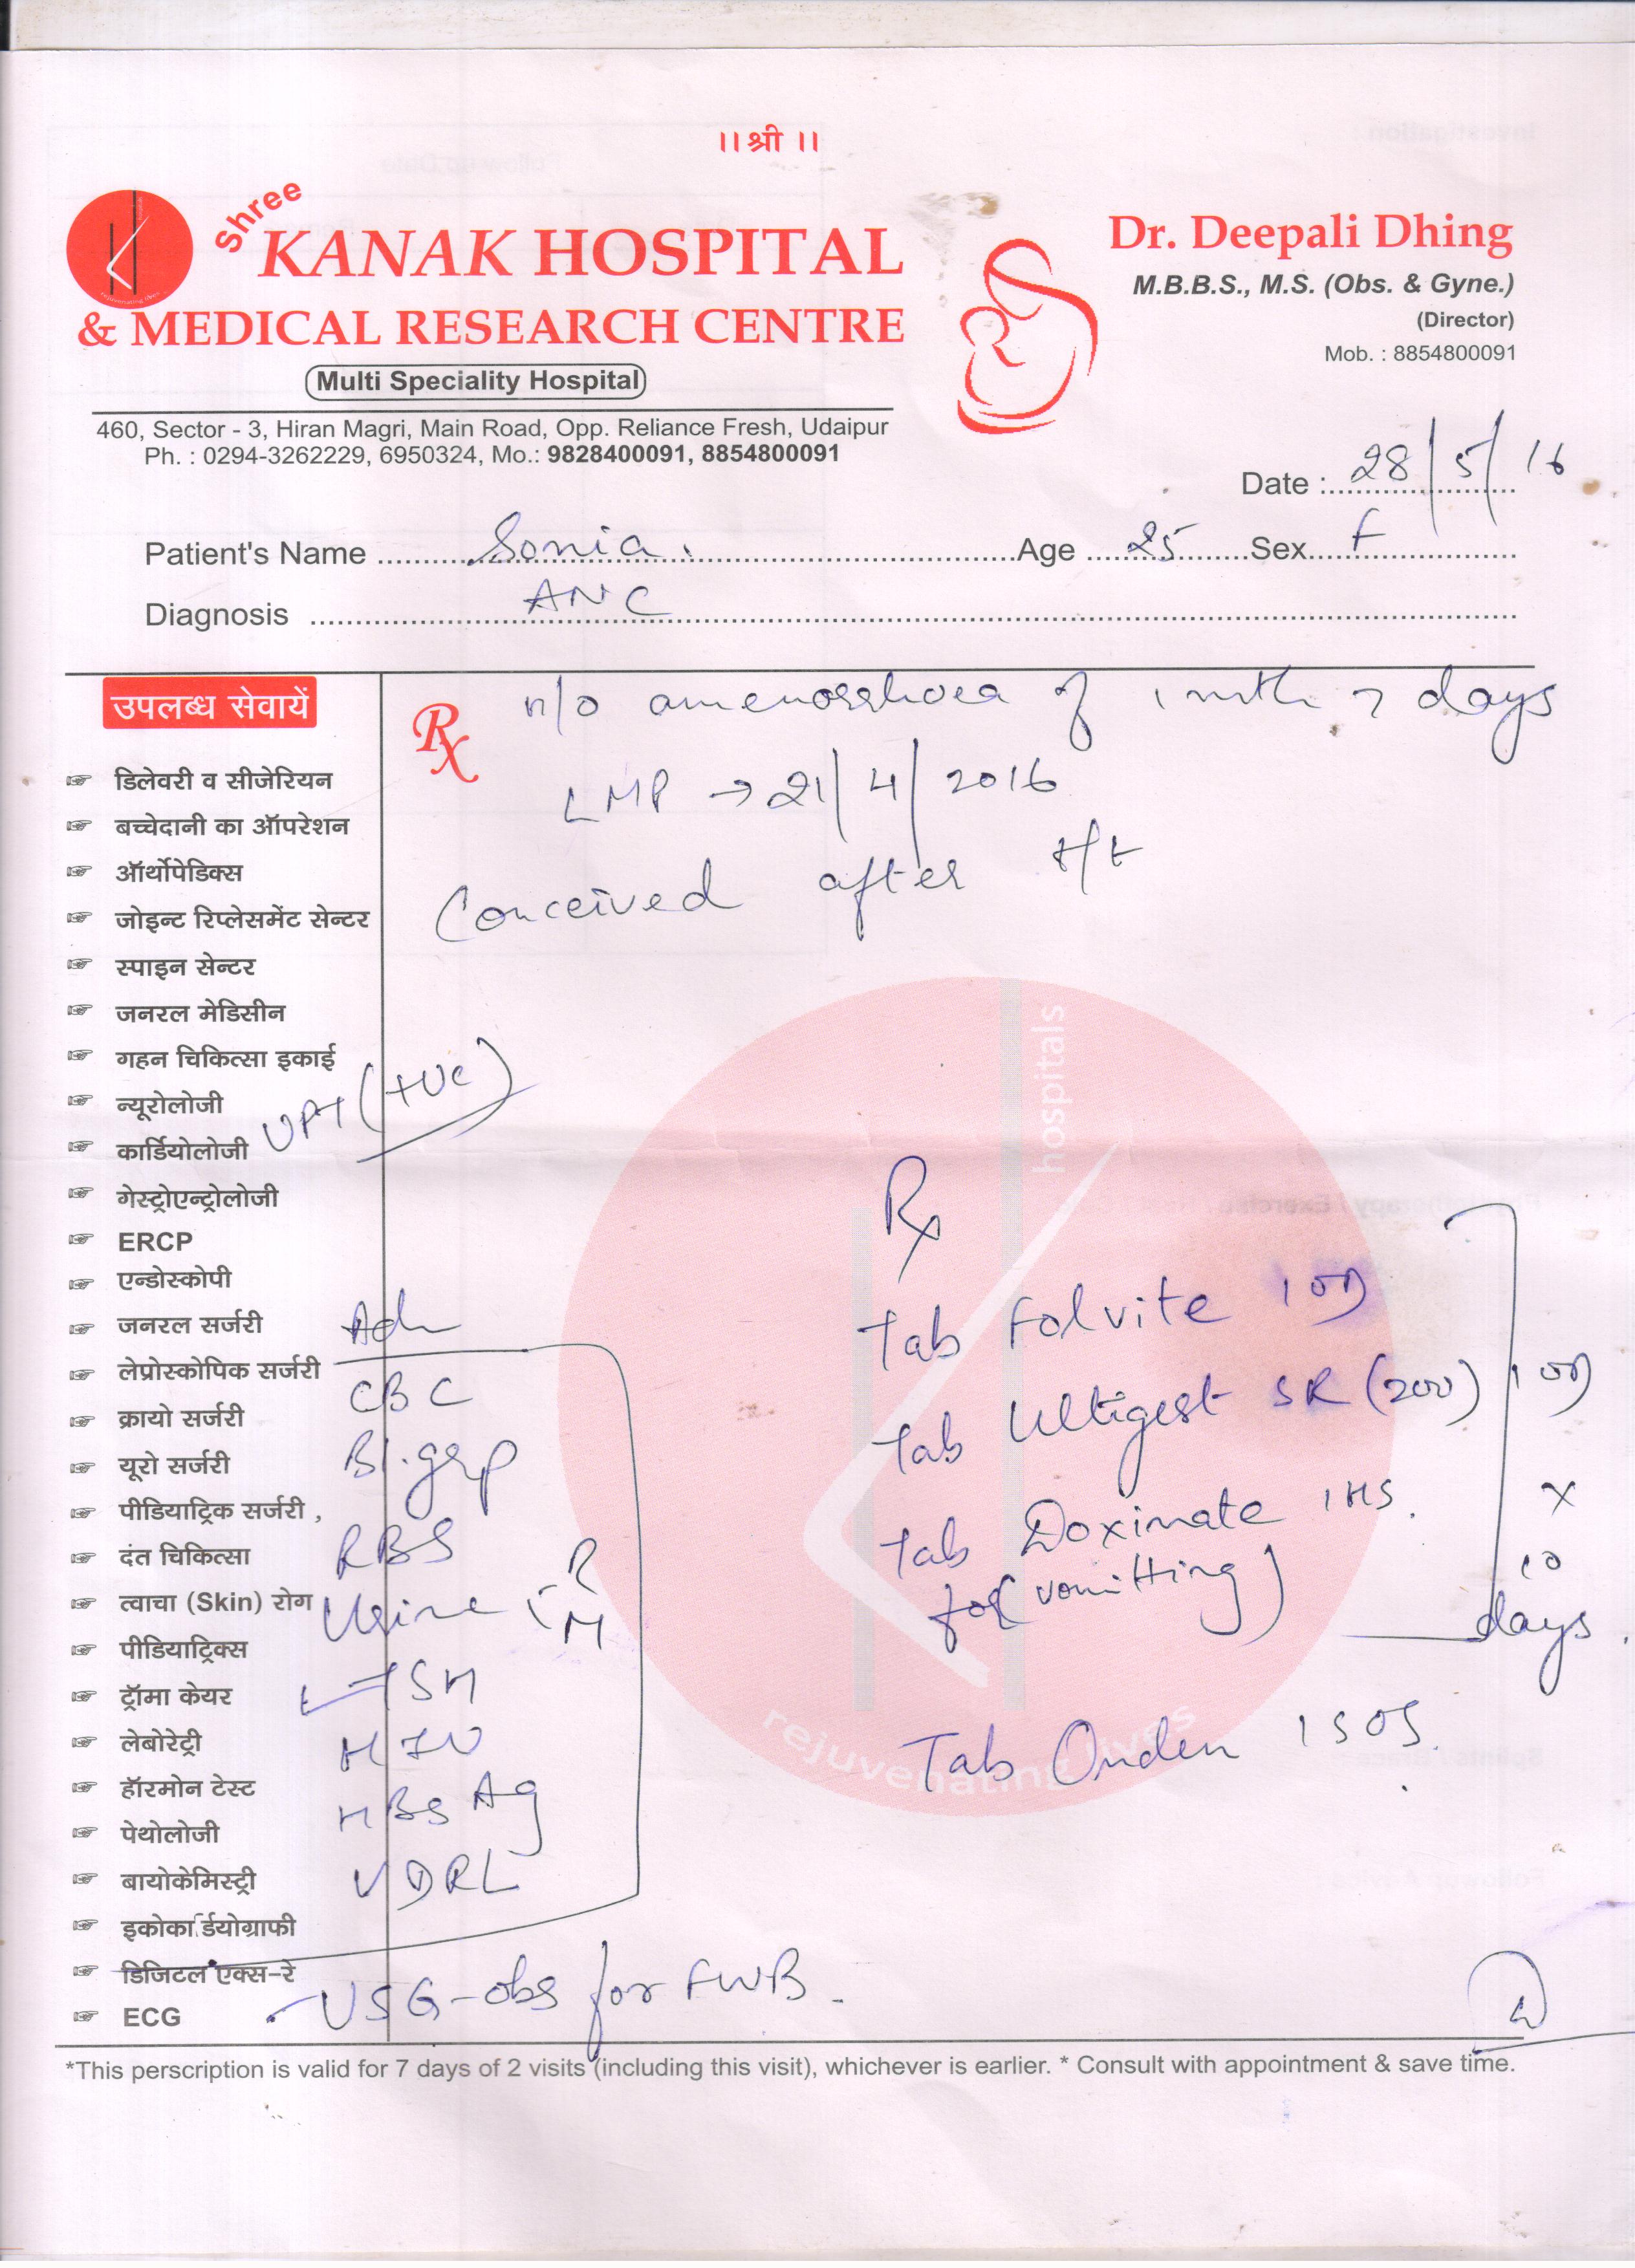 ।। श्री ।।
Shree
KANAK HOSPITAL
& MEDICAL RESEARCH CENTRE
Multi Speciality Hospital
460, Sector - 3, Hiran Magri, Main Road, Opp. Reliance Fresh, Udaipur
Ph. : 0294-3262229, 6950324, Mo.: 9828400091, 8854800091
Dr. Deepali Dhing
M.B.B.S., M.S. (Obs. & Gyne.)
(Director)
Mob. : 8854800091
Date : 28/5/16
Patient's Name Sonia Age 25 Sex F
Diagnosis ANC
उपलब्ध सेवायें
डिलेवरी व सीजेरियन
बच्चेदानी का ऑपरेशन
ऑर्थोपेडिक्स
जोइन्ट रिप्लेसमेंट सेन्टर
स्पाइन सेन्टर
जनरल मेडिसीन
गहन चिकित्सा इकाई
न्यूरोलोजी
कार्डियोलोजी
गेस्ट्रोएन्ट्रोलोजी
ERCP
एन्डोस्कोपी
जनरल सर्जरी
लेप्रोस्कोपिक सर्जरी
क्रायो सर्जरी
यूरो सर्जरी
पीडियाट्रिक सर्जरी ,
दंत चिकित्सा
त्वाचा (Skin) रोग
पीडियाट्रिक्स
ट्रॉमा केयर
लेबोरेट्री
हॉरमोन टेस्ट
पेथोलोजी
बायोकेमिस्ट्री
इकोकार्डयोग्राफी
डिजिटल एक्स-रे
ECG
Rx
H/O amenorrhoea of 1 mth 7 days
LMP → 21/4/2016
Conceived after t/t
UPT (+ve)
Adv
CBC
Bl. grp
RBS
Urine R
M
TSH
HIV
HBsAg
VDRL
USG-obs for FWB.
Rx
Tab Folvite 1 OD
Tab Ultigest SR (200) 1 OD
Tab Doximate 1 HS.
for (vomitting)
x
10
days.
Tab Onden 1 SOS.
hospitals
rejuvenating lives
*This perscription is valid for 7 days of 2 visits (including this visit), whichever is earlier. * Consult with appointment & save time.